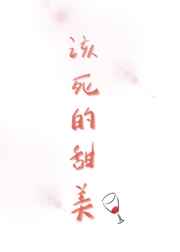 该死的甜美